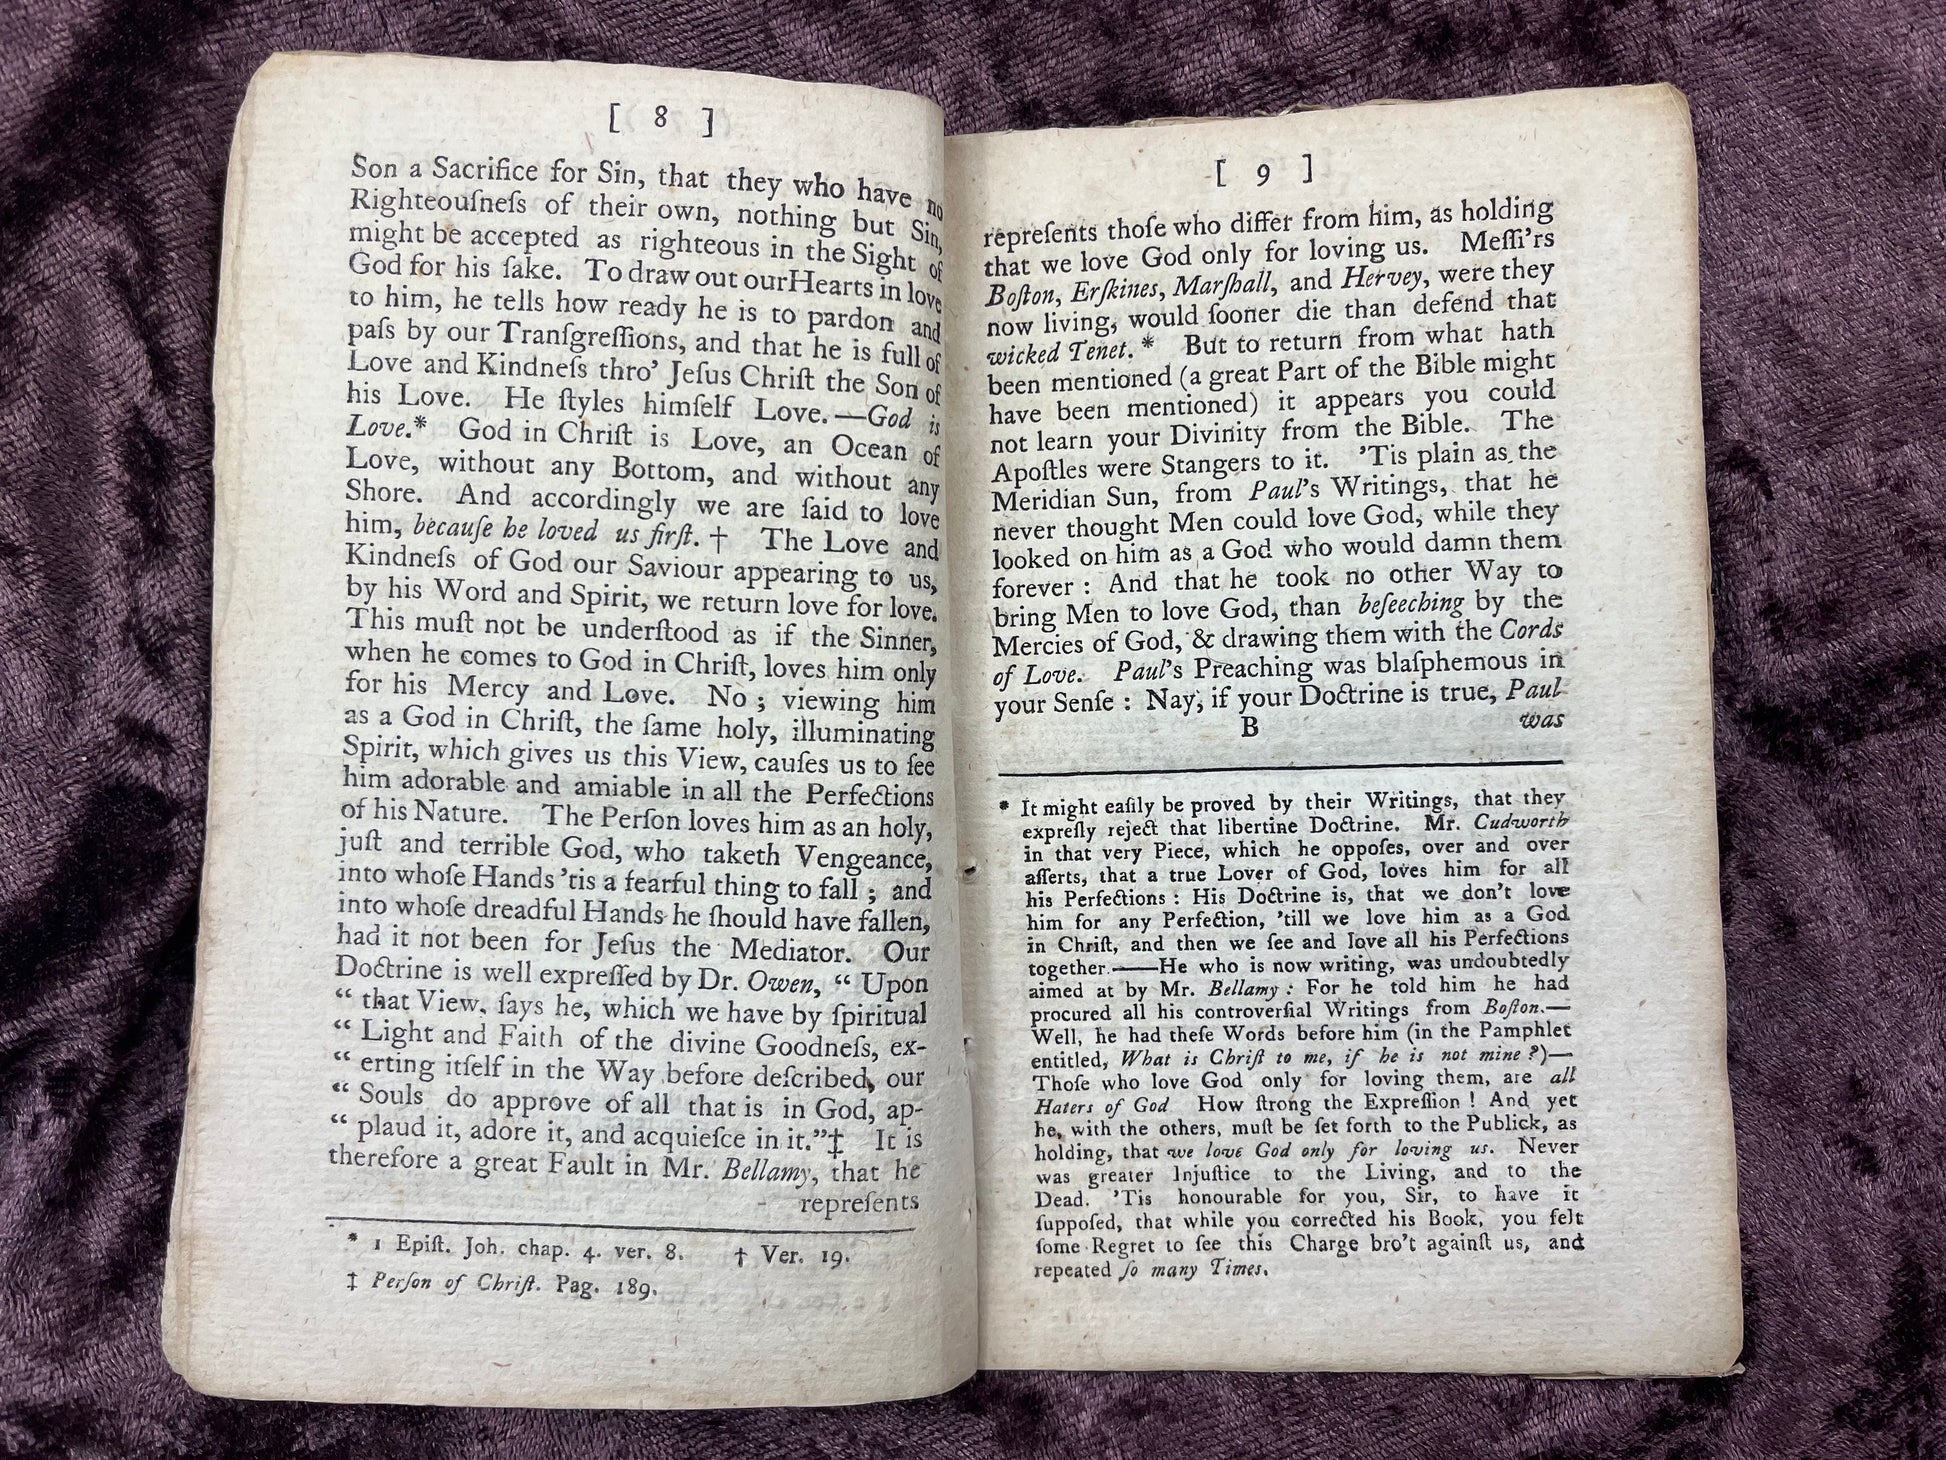 [ 8 ]
Son a Sacrifice for Sin, that they who have no
Righteouſneſs of their own, nothing but Sin,
might be accepted as righteous in the Sight of
God for his ſake. To draw out our Hearts in love
to him, he tells how ready he is to pardon and
paſs by our Tranſgreſſions, and that he is full of
Love and Kindneſs thro' Jeſus Chriſt the Son of
his Love. He ſtyles himſelf Love.—God is
Love.* God in Chriſt is Love, an Ocean of
Love, without any Bottom, and without any
Shore. And accordingly we are ſaid to love
him, becauſe he loved us firſt. † The Love and
Kindneſs of God our Saviour appearing to us,
by his Word and Spirit, we return love for love.
This muſt not be underſtood as if the Sinner,
when he comes to God in Chriſt, loves him only
for his Mercy and Love. No ; viewing him
as a God in Chriſt, the ſame holy, illuminating
Spirit, which gives us this View, cauſes us to ſee
him adorable and amiable in all the Perfections
of his Nature. The Perſon loves him as an holy,
juſt and terrible God, who taketh Vengeance,
into whoſe Hands 'tis a fearful thing to fall ; and
into whoſe dreadful Hands he ſhould have fallen,
had it not been for Jeſus the Mediator. Our
Doctrine is well expreſſed by Dr. Owen, “ Upon
“ that View, ſays he, which we have by ſpiritual
“ Light and Faith of the divine Goodneſs, ex-
“ erting itſelf in the Way before deſcribed, our
“ Souls do approve of all that is in God, ap-
“ plaud it, adore it, and acquieſce in it.”‡ It is
therefore a great Fault in Mr. Bellamy, that he
repreſents
* 1 Epiſt. Joh. chap. 4. ver. 8. † Ver. 19.
‡ Perſon of Chriſt. Pag. 189.
[ 9 ]
repreſents thoſe who differ from him, as holding
that we love God only for loving us. Meſſi'rs
Boſton, Erſkines, Marſhall, and Hervey, were they
now living, would ſooner die than defend that
wicked Tenet. * But to return from what hath
been mentioned (a great Part of the Bible might
have been mentioned) it appears you could
not learn your Divinity from the Bible. The
Apoſtles were Stangers to it. 'Tis plain as the
Meridian Sun, from Paul's Writings, that he
never thought Men could love God, while they
looked on him as a God who would damn them
forever : And that he took no other Way to
bring Men to love God, than beſeeching by the
Mercies of God, & drawing them with the Cords
of Love. Paul's Preaching was blaſphemous in
your Senſe : Nay, if your Doctrine is true, Paul
B was
* It might eaſily be proved by their Writings, that they
expreſly reject that libertine Doctrine. Mr. Cudworth
in that very Piece, which he oppoſes, over and over
aſſerts, that a true Lover of God, loves him for all
his Perfections : His Doctrine is, that we don't love
him for any Perfection, 'till we love him as a God
in Chriſt, and then we ſee and love all his Perfections
together.——He who is now writing, was undoubtedly
aimed at by Mr. Bellamy : For he told him he had
procured all his controverſial Writings from Boſton.—
Well, he had theſe Words before him (in the Pamphlet
entitled, What is Chriſt to me, if he is not mine ?)—
Thoſe who love God only for loving them, are all
Haters of God How ſtrong the Expreſſion ! And yet
he, with the others, muſt be ſet forth to the Publick, as
holding, that we love God only for loving us. Never
was greater Injuſtice to the Living, and to the
Dead. 'Tis honourable for you, Sir, to have it
ſuppoſed, that while you corrected his Book, you felt
ſome Regret to ſee this Charge bro't againſt us, and
repeated ſo many Times.